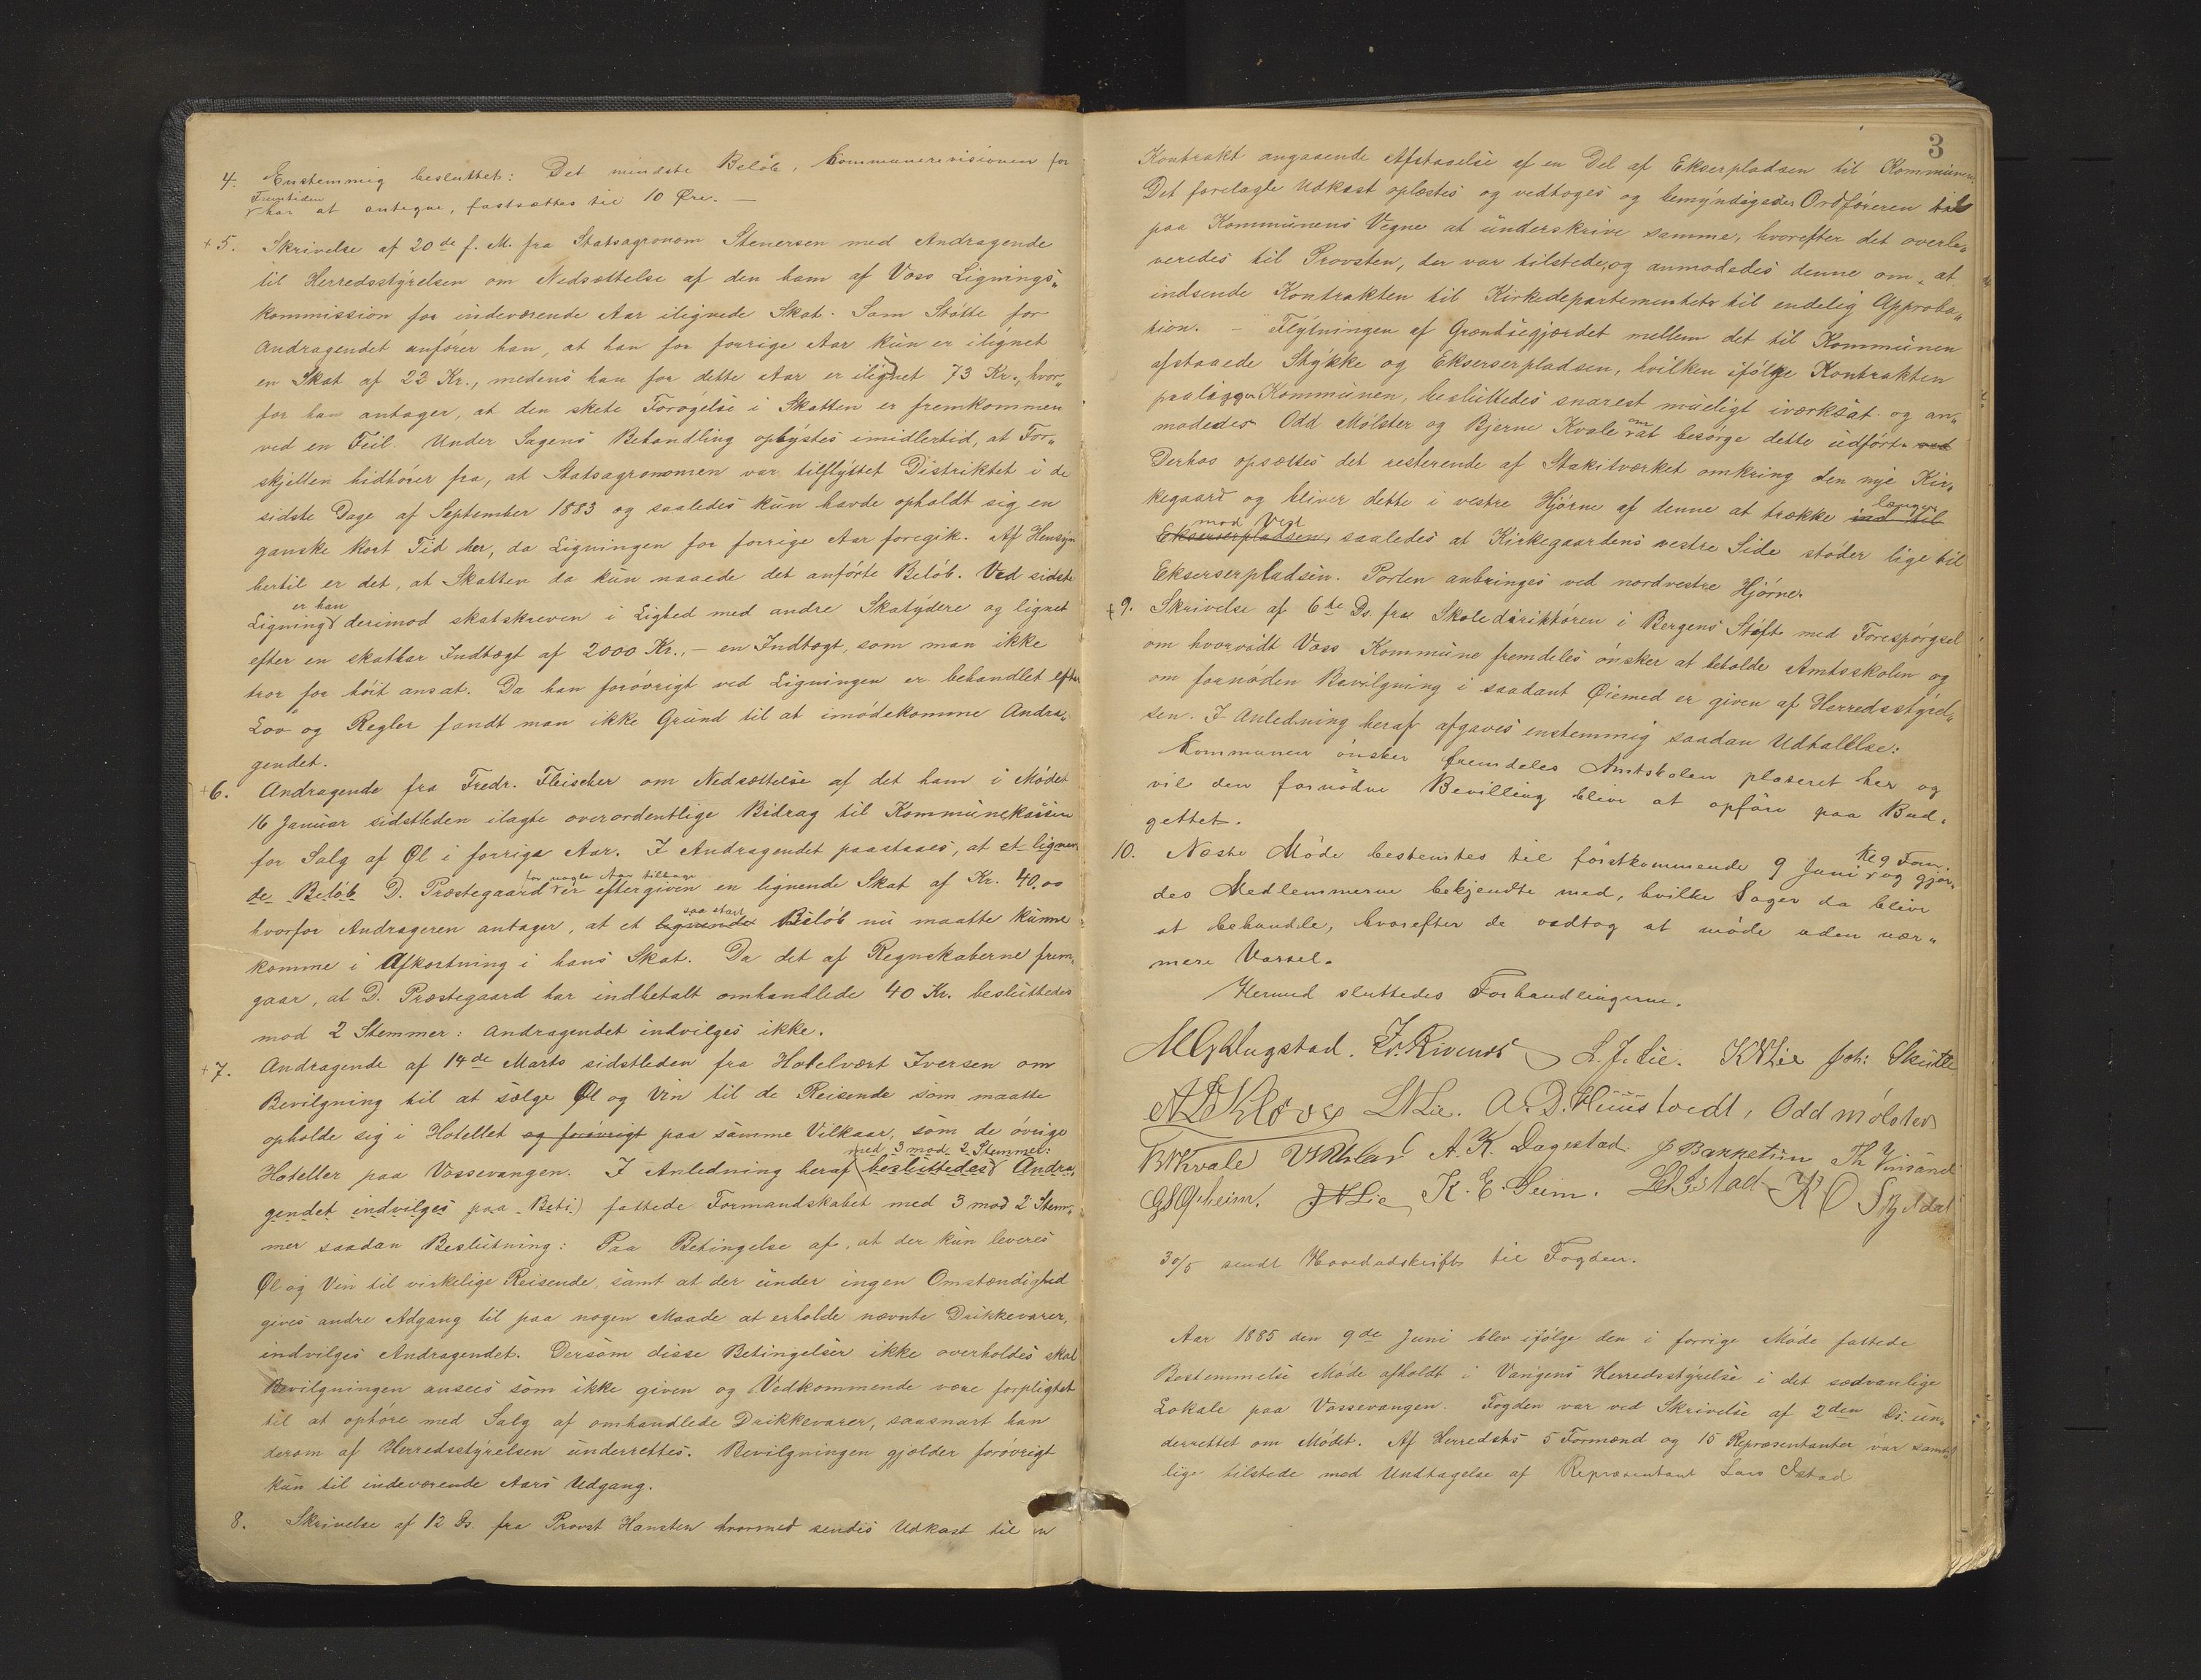 4. Enstemmig besluttet: Det mindste Beløb, Kommunerevisionen for
Fremtiden
har at antegne, fastsættes til 10 Øre. —
+ 5. Skrivelse af 20de f. M. fra Statsagronom Stenersen med Andragende
til Herredsstyrelsen om Nedsættelse af den ham af Voss Lignings-
kommission for indeværende Aar ilignede Skat. Som Støtte for
Andragendet anfører han, at han for forrige Aar kun er ilignet
en Skat af 22 Kr., medens han for dette Aar er ilignet 73 Kr., hvor-
for han antager, at den skete Forøgelse i Skatten er fremkommen
ved en Feil. Under Sagens Behandling oplystes imidlertid, at For-
skjellen hidhører fra, at Statsagronomen var tilflyttet Distriktet i de
sidste Dage af September 1883 og saaledes kun havde opholdt sig en
ganske kort Tid her, da Ligningen for forrige Aar foregik. Af Hensyn
hertil er det, at Skatten da kun naaede det anførte Beløb. Ved sidste
er han
Ligning derimod skatskreven i Lighed med andre Skatydere og lignet
efter en skatbar Indtægt af 2000 Kr., — en Indtægt, som man ikke
tror for høit ansat. Da han forøvrigt ved Ligningen er behandlet efter
Lov og Regler fandt man ikke Grund til at imødekomme Andra-
gendet.
+ 6. Andragende fra Fredr. Fleischer om Nedsættelse af det ham i Mødet
16 Januar sidstleden ilagte overordentlige Bidrag til Kommunekassen
for Salg af Øl i forrige Aar. I Andragendet paastaaes, at et lignen-
for nogle Aar tilbage
de Beløb D. Præstegaard er eftergiven en lignende Skat af Kr. 40,00
saa stort
hvorfor Andrageren antager, at et lignende Beløb nu maatte kunne
komme i Afkortning i hans Skat. Da det af Regnskaberne frem-
gaar, at D. Præstegaard har indbetalt omhandlede 40 Kr. besluttedes
mod 2 Stemmer: Andragendet indvilges ikke.
+ 7. Andragende af 14de Marts sidstleden fra Hotelvært Iversen om
Bevilgning til at sælge Øl og Vin til de Reisende som maatte
opholde sig i Hotellet og forøvrigt paa samme Vilkaar, som de øvrige
med 3 mod 2 Stemmer:
Hoteller paa Vossevangen. I Anledning heraf besluttedes Andra-
gendet indvilges paa Beti) fattede Formandskabet med 3 mod 2 Stem-
mer saadan Beslutning: Paa Betingelse af, at der kun leveres
Øl og Vin til virkelige Reisende, samt at der under ingen Omstændighed
gives andre Adgang til paa nogen Maade at erholde nævnte Drikkevarer,
indvilges Andragendet. Dersom disse Betingelser ikke overholdes skal
Bevilgningen ansees som ikke given og Vedkommende være forpligtet
til at ophøre med Salg af omhandlede Drikkevarer, saasnart han
derom af Herredsstyrelsen underrettes. Bevilgningen gjælder forøvrigt
kun til indeværende Aars Udgang.
8. Skrivelse af 12 Ds. fra Provst Hansten hvormed sendes Udkast til en
3
Kontrakt angaaende Afstaaelse af en Del af Ekserpladsen til Kommunen.
Det forelagte Udkast oplæstes og vedtoges og bemyndigedes Ordføreren til
paa Kommunens Vegne at underskrive samme, hvorefter det overle-
veredes til Provsten, der var tilstede, og anmodedes denne om, at
indsende Kontrakten til Kirkedepartementet til endelig Approba-
tion. — Flytningen af Grændsegjærdet mellem det til Kommunen
afstaaede Stykke og Ekserserpladsen, hvilken ifølge Kontrakten
paaligger Kommunen, besluttedes snarest mueligt iværksat og an-
om
modedes Odd Mølster og Bjerne Kvale at besørge dette udført. ved
Derhos opsættes det resterende af Stakitværket omkring den nye Kir-
længer
kegaard og bliver dette i vestre Hjørne af denne at trække ind til
mod Vest
Ekserserpladsen, saaledes at Kirkegaardens vestre Side støder lige til
Ekserserpladsen. Porten anbringes ved nordvestre Hjørne.
+ 9. Skrivelse af 6te Ds. fra Skoledirektøren i Bergens Stift med Forespørgsel
om hvorvidt Voss Kommune fremdeles ønsker at beholde Amtsskolen og
om fornøden Bevilgning i saadant Øiemed er given af Herredsstyrel-
sen. I Anledning heraf afgaves enstemmig saadan Udtalelse:
Kommunen ønsker fremdeles Amtskolen placeret her og
vil den fornødne Bevilling blive at opføre paa Bud-
gettet.
Kl 9 Form.
10. Næste Møde bestemtes til førstkommende 9 Juni og gjor-
des Medlemmerne bekjendte med, hvilke Sager da blive
at behandle, hvorefter de vedtog at møde uden nær-
mere Varsel.
Hermed sluttedes Forhandlingerne.
L. J. Lie. K N Lie Joh: Skutle
L N Lie. Odd Mølster
B Kvale A. K. Dagestad.
J N Lie K. E. Seim.
30/5 sendt Hovedudskrift til Fogden.
Aar 1885 den 9de Juni blev ifølge den i forrige Møde fattede
Bestemmelse Møde afholdt i Vangens Herredsstyrelse i det sædvanlige
Lokale paa Vossevangen. Fogden var ved Skrivelse af 2den Ds. un-
derrettet om Mødet. Af Herredets 5 Formænd og 15 Repræsentanter var samt-
lige tilstede med Undtagelse af Repræsentant Lars Istad